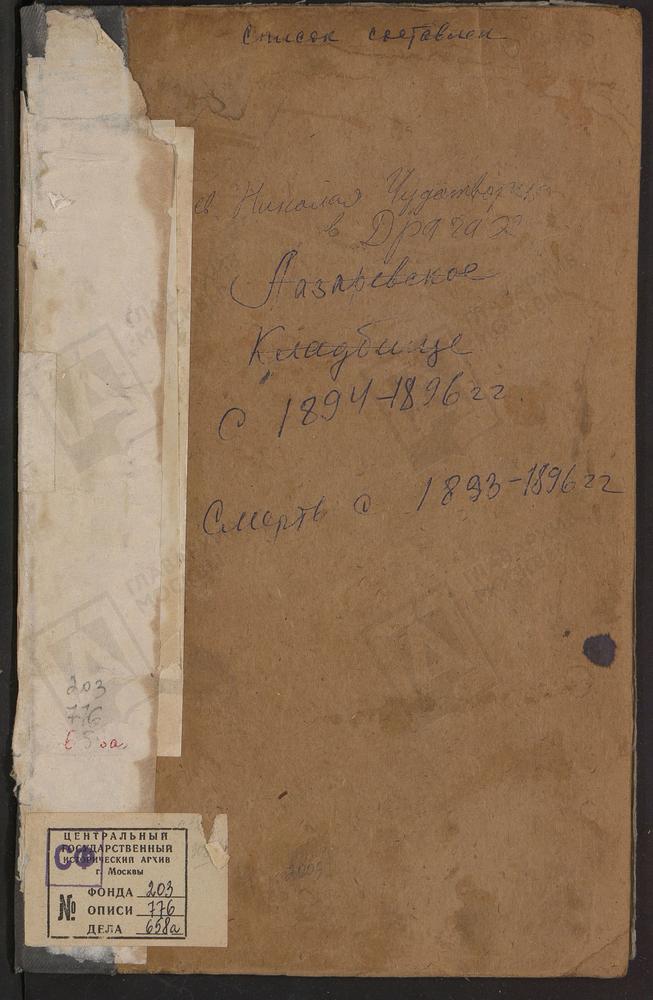 Список составлен
св. Николая Чудотворца
в Драчах
Лазаревское
Кладбище
с 1894-1896 гг.
Смерть с 1893-1896 гг
203
776
658а
ЦЕНТРАЛЬНЫЙ
ГОСУДАРСТВЕННЫЙ
ИСТОРИЧЕСКИЙ АРХИВ
г. Москвы
СФ
№
ФОНДА 203
ОПИСИ 776
ДЕЛА 658а